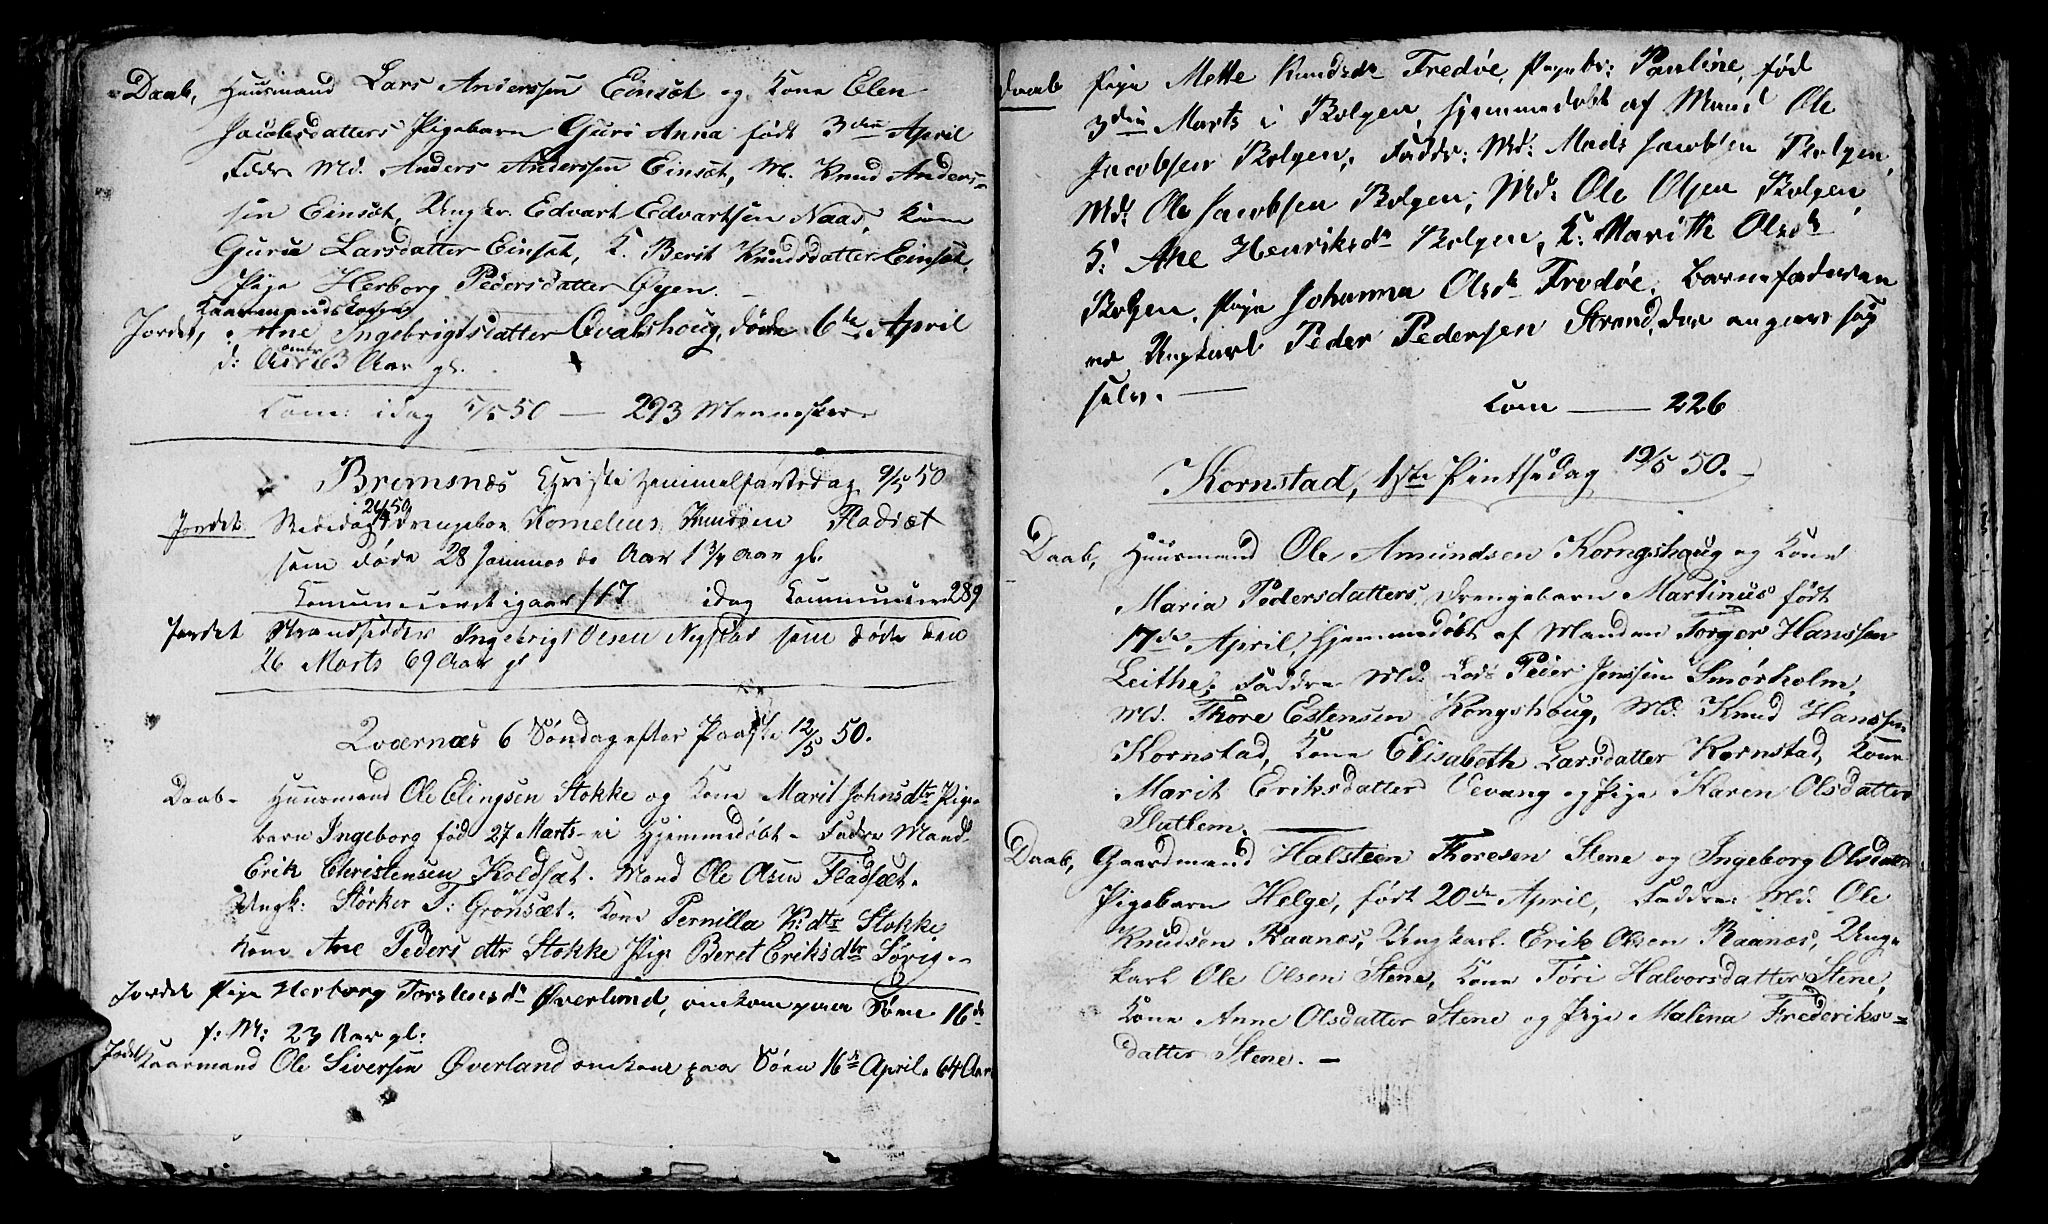 Daab, Huusmand Lars Anderssen Einsæt og Kone Elen
Jacobsdatters Pigebarn Guri Anna født 3die April
Fadr Md. Anders Anderssen Einsæt, M. Knud Anders-
sen Einsæt, Ungkr. Edvart Edvartsen Naas, Kone
Guru Larsdatter Einset, K. Berit Knudsdatter Einset,
Pige Herborg Pedersdatter Øyen. —
Kaarmandskone
Jordet, Ane Ingebrigtsdatter Qvalshoug, døde 6te April
d: Aar 63 Aar gl.
Kom: idag 5/5 50 — 293 Mennesker
Bremsnæs Christi Himmelfartsdag 9/5 50
24/4 50
Jordet Drengebn Kornelius Knudsen Fladsæt
som døde 28 Januar d. Aar 1 3/4 Aar gl.
Komuniceret igaar 117 idag Kommunicer 289
Jordet Strandsidder Ingebrigt Olsen Nystad som døde den
26 Marts 69 Aar gl
Qværnæs 6 Søndag efter Paaske 12/5 50.
Daab- Huusmand Ole Elingsen Stokke og Kone Marit Johnsdtr Pige-
barn Ingeborg fød 27 Marts- ei Hjemmedøbt- Fadre Mand
Erik Christensen Koldsæt. Mand Ole Olsen Fladsæt.
Ungk: Størker T: Grønsæt. Kone Pernilla K:dtr Stokke
Kone Ane Peders dtr Stokke Pige Beret Eriksdtr Sørig-
Jordet Pige Herborg Torstensdr Øverland, omkom paa Søen 16de
f: M: 23 Aar gl:
Jordet Kaarmand Ole Siversen Øverland omkom paa Søen 16de April 64 Aar
Daab Pige Mette Knudsdr Fredøe, Pigeb: Pauline, fød
3die Marts i Bolgen, hjemmedøbt af Mand Ole
Jacobsen Bolgen, Faddr: Md: Mads Jacobsen Bolgen,
Md: Ole Jacobsen Bolgen, Md: Ole Olsen Bolgen,
K: Ane Henriksdr Bolgen, K: Marith Olsdr
Bolgen, Pige Johanna Olsdr Fredøe. Barnefaderen
er Ungkarl Peder Pedersen Strand, der angav sig
selv. —
Kom — 226
Kornstad, 1ste Pintsedag 19/5 50. —
Daab, Huusmand Ole Amundsen Korngshaug og Kone
Maria Pedersdatters, Drengebarn Martinus født
17de April, hjemmedøbt af Manden Torger Hanssen
Leithe; Faddre Md: Lods Peder Jenssen Smørholm,
Md. Thore Estensen Kongshoug, Md: Knud Hanssen
Kornstad, Kone Elisabeth Larsdatter Kornstad, Kone
Marit Eriksdatter Vevang og Pige Karen Olsdatter
Slatlem.
Daab, Gaardmand Halsteen Thoresen Stene og Ingeborg Olsdatter
Pigebarn Helge, født 20de April, Faddre: Md: Ole
Knudsen Raanes, Ungkarl. Erik Olsen Raanes, Ung-
karl Ole Olsen Stene, Kone Tøri Halvorsdatter Stene,
Kone Anne Olsdatter Stene og Pige Malina Frederiks-
datter Stene. —